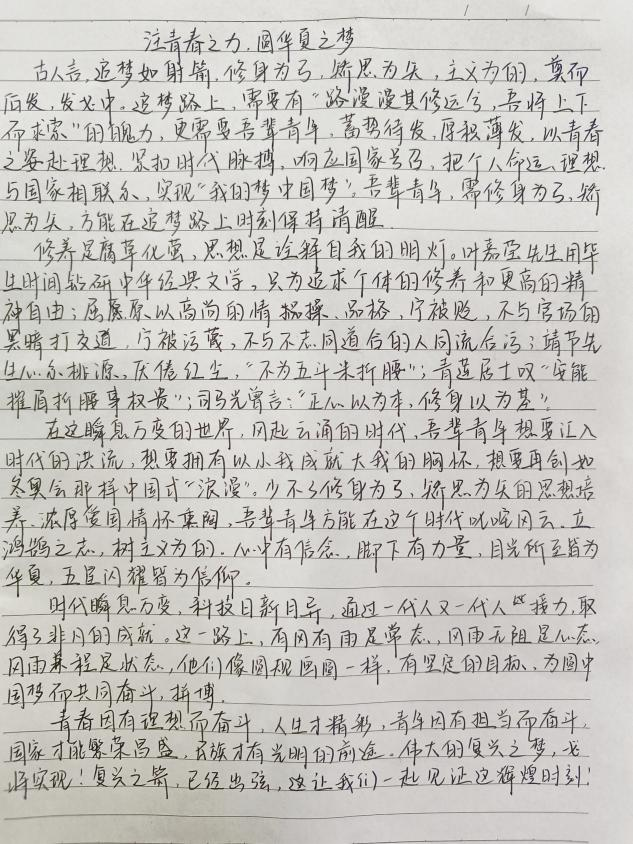 注青春之力,圆华夏之梦
古人言,追梦如射箭,修身为弓,矫思为矢,主义为的,奠而
后发,发必中。追梦路上,需要有“路漫漫其修远兮,吾将上下
而求索”的魄力,更需要吾辈青年,蓄势待发,厚积薄发,以青春
之姿赴理想。紧扣时代脉搏,响应国家号召,把个人命运、理想
与国家相联系,实现“我的梦中国梦”。吾辈青年,需修身为弓,矫
思为矢,方能在追梦路上时刻保持清醒。
修养是腐草化萤,思想是诠释自我的明灯。叶嘉莹先生用毕
生时间钻研中华经典文学,只为追求个体的修养和更高的精
神自由;屈原以高尚的情操、品格,宁被贬,不与官场的
黑暗打交道,宁被污蔑,不与不志同道合的人同流合污;靖节先
生心系桃源,厌倦红尘,“不为五斗米折腰”;青莲居士叹“安能
摧眉折腰事权贵”;司马光曾言:“正心以为本,修身以为基”。
在这瞬息万变的世界,风起云涌的时代,吾辈青年想要汇入
时代的洪流,想要拥有以小我成就大我的胸怀,想要再创如
冬奥会那样中国式“浪漫”。少不了修身为弓,矫思为矢的思想培
养。浓厚爱国情怀熏陶,吾辈青年方能在这个时代叱咤风云。立
鸿鹄之志,树主义为的。心中有信念,脚下有力量,目光所至皆为
华夏,五星闪耀皆为信仰。
时代瞬息万变,科技日新月异,通过一代人又一代人的接力,取
得了非凡的成就。这一路上,有风有雨是常态,风雨无阻是心态,
风雨兼程是状态,他们像圆规画圆一样,有坚定的目标,为圆中
国梦而共同奋斗,拼搏。
青春因有理想而奋斗,人生才精彩,青年因有担当而奋斗,
国家才能繁荣昌盛,民族才有光明的前途。伟大的复兴之梦,必
将实现!复兴之箭,已经出弦,这让我们一起见证这辉煌时刻!